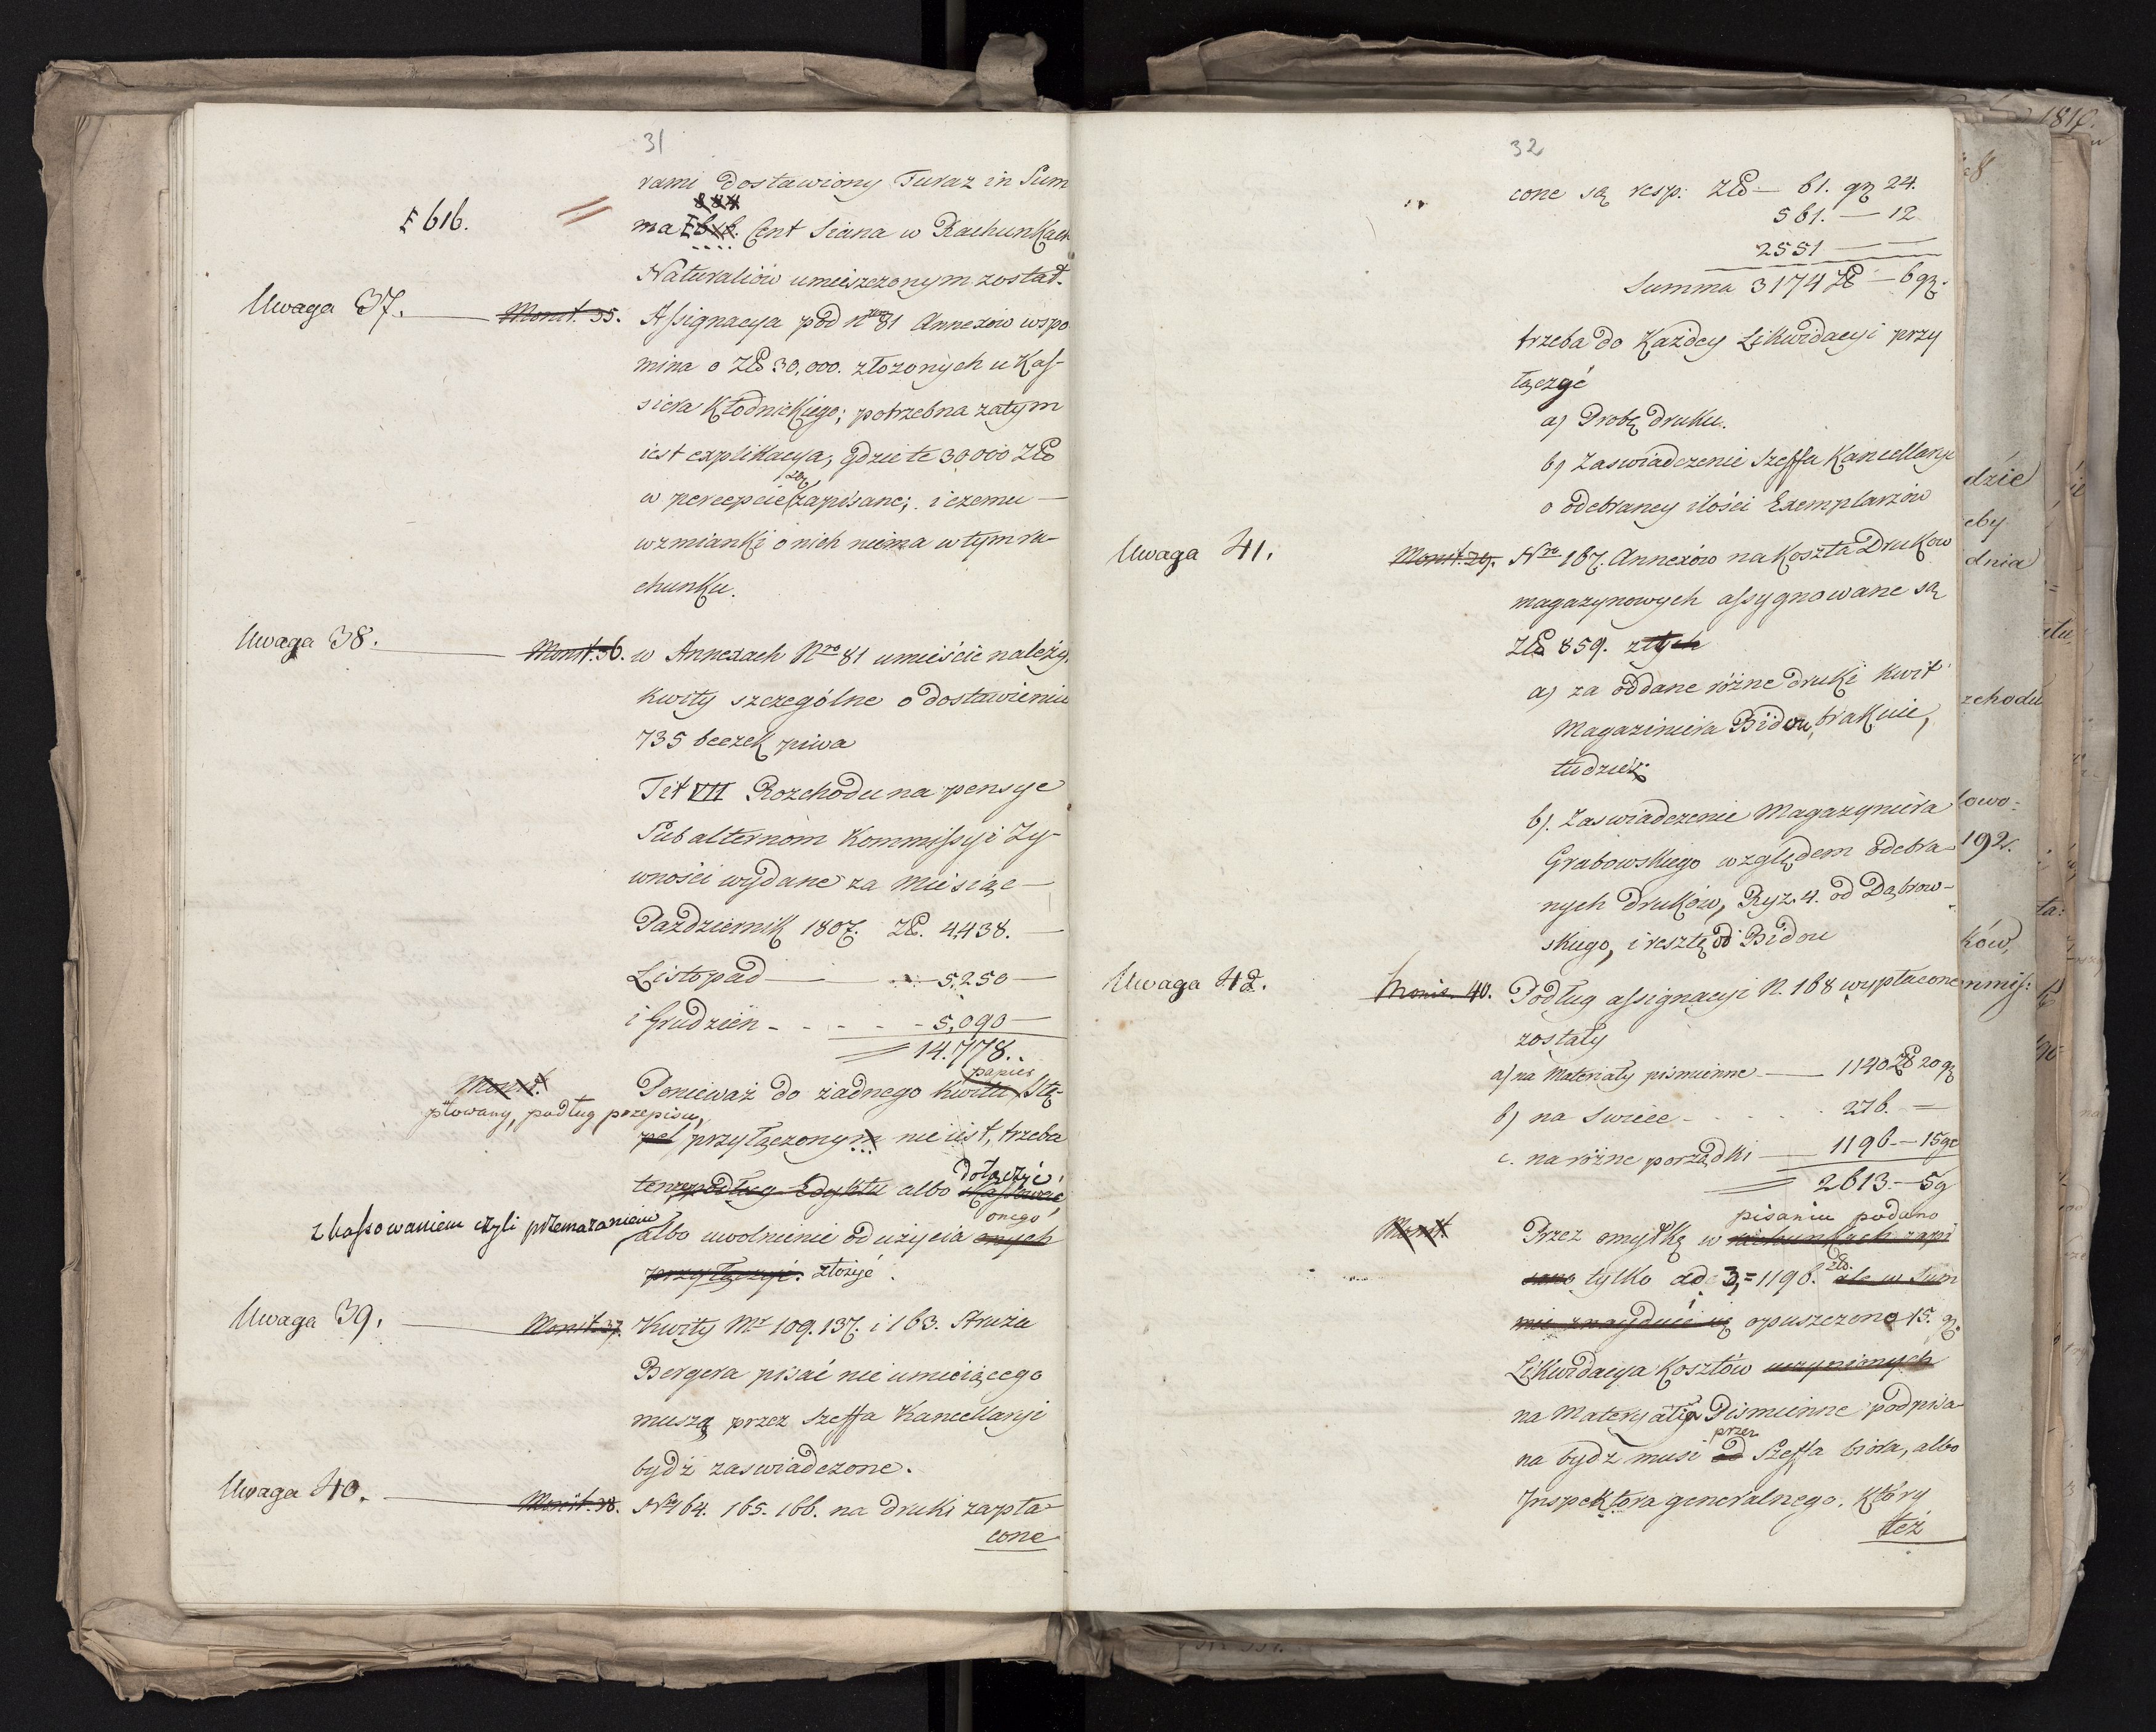 31
rami dostawiony Furaz in Sum
616.
ma Cent Siana w Rachunkach
Naturaliów umieszczonym został.
Uwaga 37. Monit. 35. Assignacya pod Nro 81 Annexów wspo
mina o Złp 30,000. złożonych u Kas-
siera Kłodnickiego; potrzebna zatym
iest explikacya, gdzie te 30000 Złp
są
w percepcie zapisane; i czemu
wzmianki o nich niema w tym ra-
chunku.
Uwaga 38. Monit. 36. w Annexach Nro 81 umieścić należy
kwity szczególne o dostawieniu
735 beczek piwa
Tit VII Rozchodu na pensye
Subalternom Kommissyi Zy-
wności wydane za Miesiąc
Pazdziernik 1807. Zł. 4438.
Listopad 5.250
i Grudzień 5,090
14.778.
papier
Monit. Ponieważ do żadnego kwitu Stę-
plowany, podług przepisu,
pel przyłączonym nie iest, trzeba
dołączyć
tenże podług Edyktu albo skassowac
onego
z kassowaniem czyli przemazaniem
albo uwolnienie od użycia onych
przyłączyć. złożyć.
Uwaga 39. Monit. 37. Kwity Nr 109. 137. i 163. Struża
Bergera pisać nie umieiącego
muszą przez Szeffa Kancellaryi
bydź zaswiadczone.
Uwaga 40. Monit. 38. Nro 164. 165. 166. na druki zapła-
cone
32
cone są resp: Złp 61. gr 24.
561. — 12
2551 — —
Summa 3174 Zł — 6 gr.
trzeba do Każdey Likwidacyi przy
łączyć
a) Probę druku.
b) Zaswiadczenie Szeffa Kancellaryi
o odebraney ilości Exemplarzów
Uwaga 41. Monit. 29. Nro 167. Annexów na Koszta Druków
magazynowych assygnowane są
Złp 859. z tych
a) za oddane różne druki kwit
Magaziniera Bidou, brakuie,
tudzież
b). Zaswiadczenie Magazyniera
Grabowskiego względem odebra-
nych druków, Ryz. 4. od Dąbrow-
skiego, i resztę od Bidou
Uwaga 42. Monit. 40. Podług assignacyi N. 168 wypłacone
zostały
a) na Materiały pismienne — 1140 Zł 20 gr
b) na Swiece 276. —
c. na różne porządki — 1196 — 15 gr
2613. — 5 g
pisaniu podano
Monit Przez omyłkę w rachunkach zapi
złp.
sano tylko ad 3, = 1196. ale w Sum
mie znayduie się opuszczono 15. gr.
Likwidacya Kosztów uczynionych
na Materyały Pismienne podpisa
przez
na bydź musi od Szeffa biora, albo
Inspektora generalnego, który
też
1810.
dzie
eby
dnia
zchodu
łowo-
192.
ków,
mmiss: